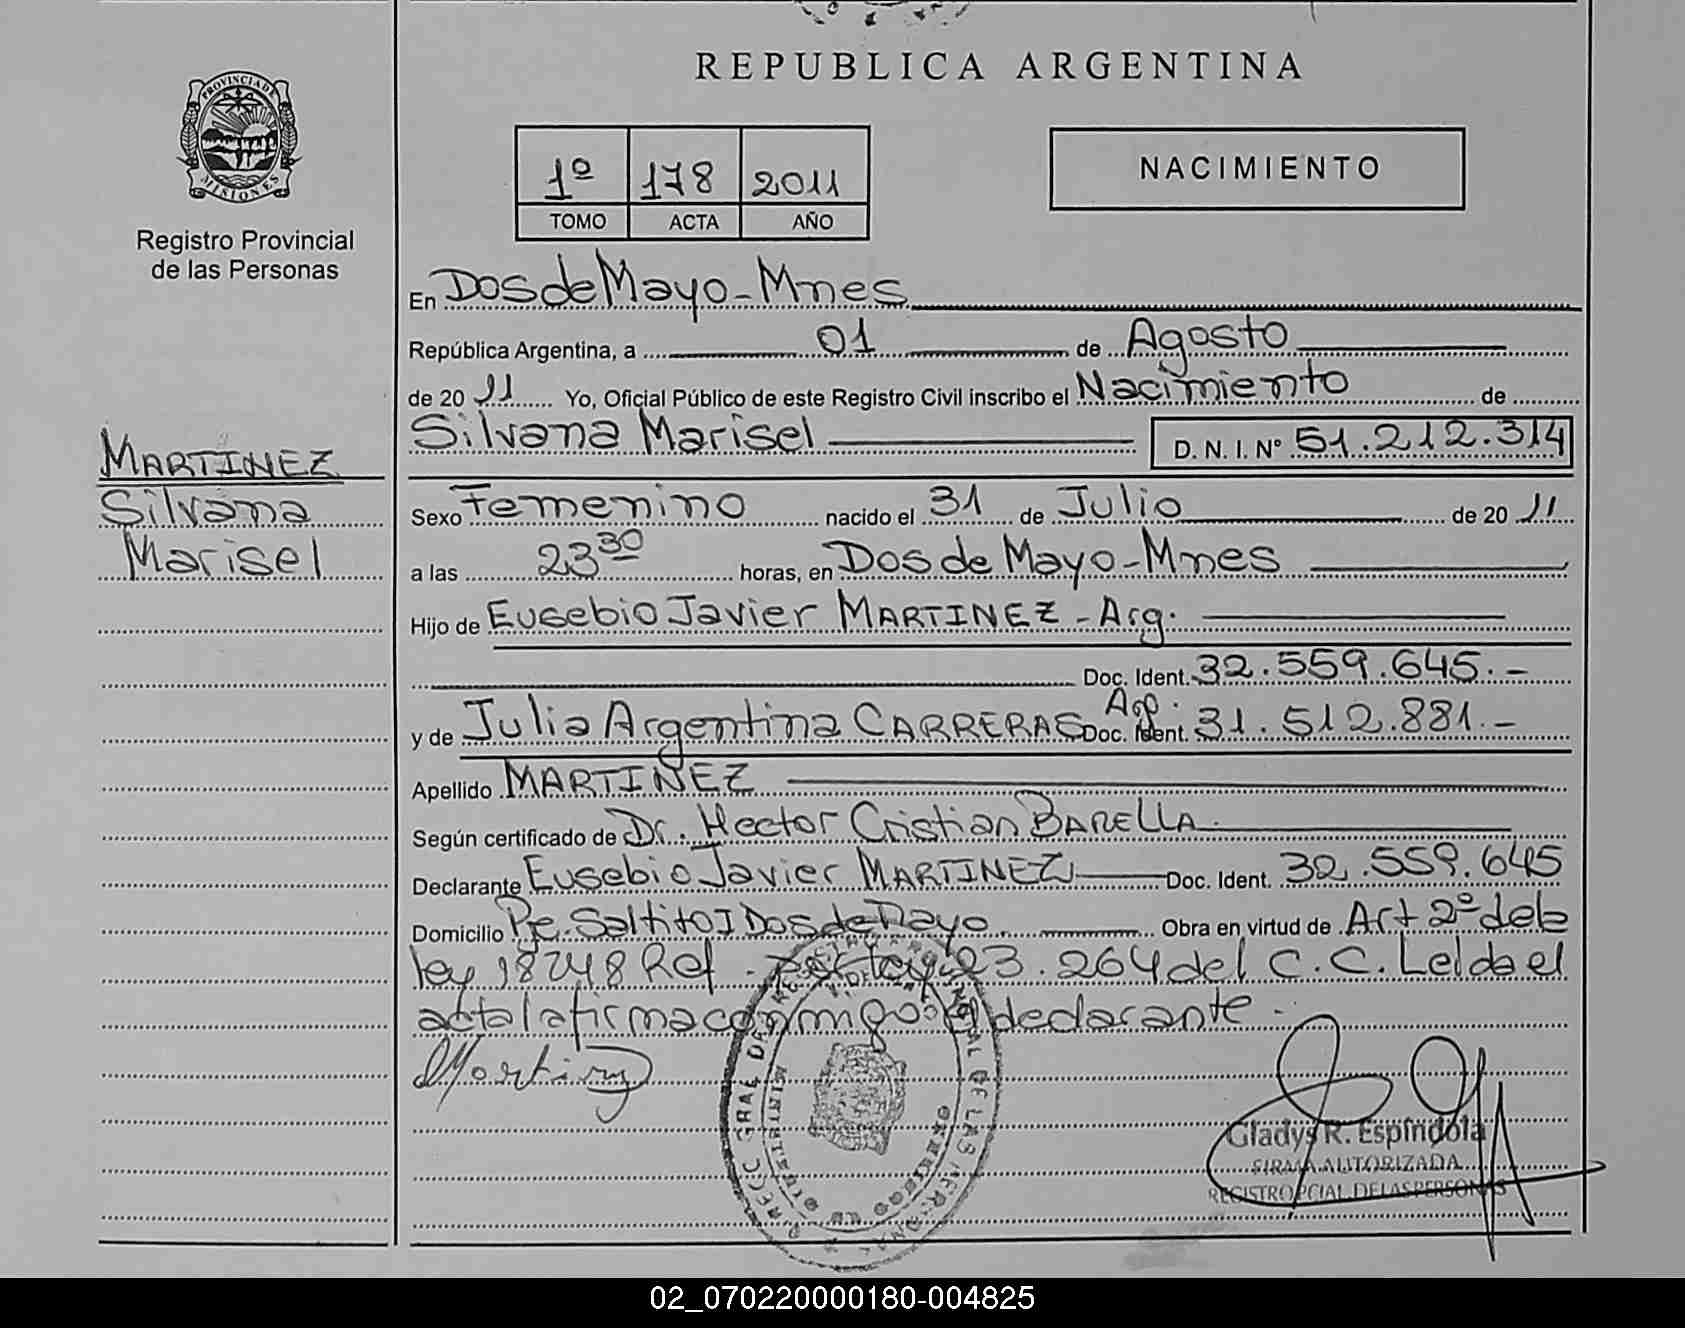 REPUBLICA ARGENTINA
PROVINCIA DE
MISIONES
Registro Provincial
de las Personas
1º 178 2011
TOMO ACTA AÑO
NACIMIENTO
En Dos de Mayo - Mnes
República Argentina, a 01 de Agosto
de 20 11 Yo, Oficial Público de este Registro Civil inscribo el Nacimiento de
Silvana Marisel D. N. I. Nº 51.212.314
MARTINEZ
Silvana
Marisel
Sexo Femenino nacido el 31 de Julio de 20 11
a las 23 30 horas, en Dos de Mayo - Mnes
Hijo de Eusebio Javier MARTINEZ - Arg.
Doc. Ident. 32.559.645.-
y de Julia Argentina CARRERAS Doc. Ident. 31.512.881.-
Apellido MARTINEZ
Según certificado de Dr. Hector Cristian BARELLA.
Declarante Eusebio Javier MARTINEZ Doc. Ident. 32.559.645
Domicilio Pje. Saltito I Dos de Mayo Obra en virtud de Art 2º de la
ley 18248 Ref. por ley 23.264 del C.C. Leida el
acta la firma conmigo el declarante.-
Gladys R. Espíndola
FIRMA AUTORIZADA
REGISTRO PCIAL DE LAS PERSONAS
02_070220000180-004825